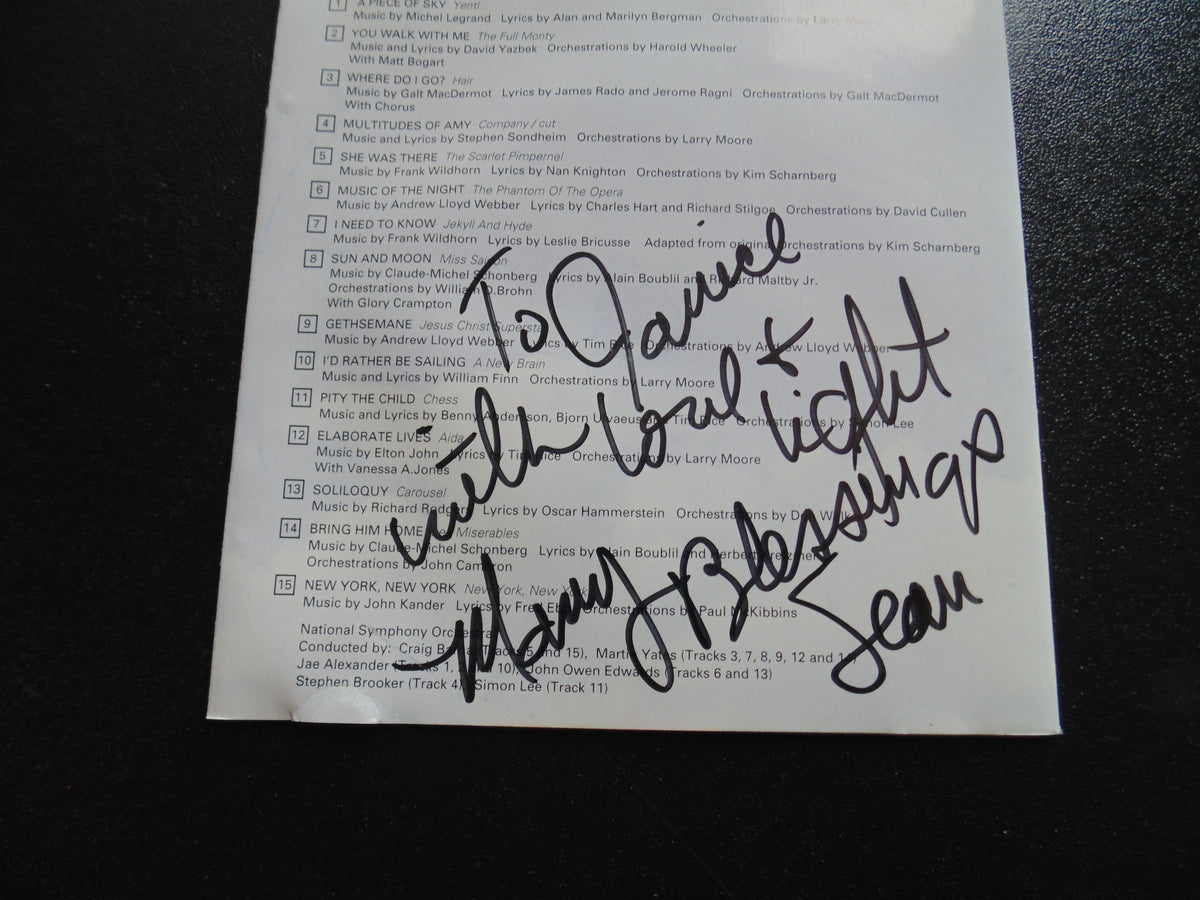 1 A PIECE OF SKY Yentl
Music by Michel Legrand Lyrics by Alan and Marilyn Bergman Orchestrations by Larry Moore
2 YOU WALK WITH ME The Full Monty
Music and Lyrics by David Yazbek Orchestrations by Harold Wheeler
With Matt Bogart
3 WHERE DO I GO? Hair
Music by Galt MacDermot Lyrics by James Rado and Jerome Ragni Orchestrations by Galt MacDermot
With Chorus
4 MULTITUDES OF AMY Company / cut
Music and Lyrics by Stephen Sondheim Orchestrations by Larry Moore
5 SHE WAS THERE The Scarlet Pimpernel
Music by Frank Wildhorn Lyrics by Nan Knighton Orchestrations by Kim Scharnberg
6 MUSIC OF THE NIGHT The Phantom Of The Opera
Music by Andrew Lloyd Webber Lyrics by Charles Hart and Richard Stilgoe Orchestrations by David Cullen
7 I NEED TO KNOW Jekyll And Hyde
Music by Frank Wildhorn Lyrics by Leslie Bricusse Adapted from original Orchestrations by Kim Scharnberg
8 SUN AND MOON Miss Saigon
Music by Claude-Michel Schonberg Lyrics by Alain Boublil and Richard Maltby Jr.
Orchestrations by William D.Brohn
With Glory Crampton
9 GETHSEMANE Jesus Christ Superstar
Music by Andrew Lloyd Webber Lyrics by Tim Rice Orchestrations by Andrew Lloyd Webber
10 I'D RATHER BE SAILING A New Brain
Music and Lyrics by William Finn Orchestrations by Larry Moore
11 PITY THE CHILD Chess
Music and Lyrics by Benny Andersson, Bjorn Ulvaeus and Tim Rice Orchestrations by Simon Lee
12 ELABORATE LIVES Aida
Music by Elton John Lyrics by Tim Rice Orchestrations by Larry Moore
With Vanessa A.Jones
13 SOLILOQUY Carousel
Music by Richard Rodgers Lyrics by Oscar Hammerstein Orchestrations by Don Walker
14 BRING HIM HOME Les Miserables
Music by Claude-Michel Schonberg Lyrics by Alain Boublil and Herbert Kretzmer
Orchestrations by John Cameron
15 NEW YORK, NEW YORK New York, New York
Music by John Kander Lyrics by Fred Ebb Orchestrations by Paul McKibbins
National Symphony Orchestra
Conducted by: Craig (Tracks 5 and 15), Martin Yates (Tracks 3, 7, 8, 9, 12 and
Jae Alexander (Tracks 1, and 10), John Owen Edwards (Tracks 6 and 13)
Stephen Brooker (Track 4), Simon Lee (Track 11)
To Janice
with love +
light
Many Blessings
Sean